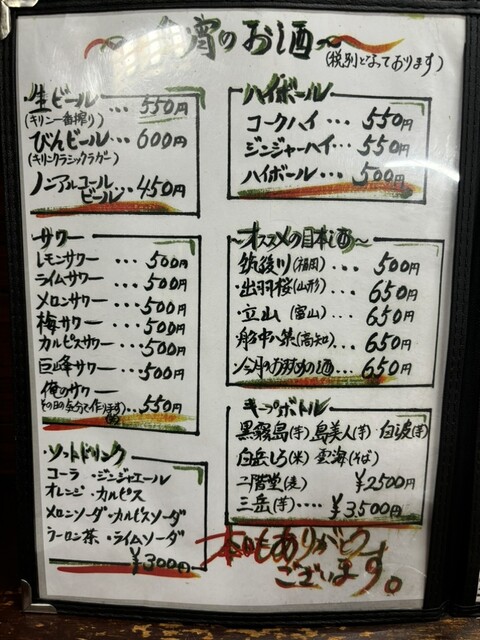 今宵のお酒
(税別となっております)
・生ビール … 550円
(キリン一番搾り)
びんビール … 600円
(キリンクラシックラガー)
ノンアルコール
ビール … 450円
サワー
レモンサワー … 500円
ライムサワー … 500円
メロンサワー … 500円
梅サワー … 500円
カルピスサワー … 500円
巨峰サワー … 500円
俺のサワー
(その日の気分で作ります) … 550円
・ソットドリンク
コーラ ・ジンジャエール
オレンジ ・カルピス
メロンソーダ ・カルピスソーダ
ウーロン茶 ・ライムソーダ
¥300円
ハイボール
コークハイ … 550円
ジンジャーハイ … 550円
ハイボール 500円
〜オススメの日本酒〜
筑後川(福岡) … 500円
・出羽桜(山形) … 650円
・立山(富山) … 650円
船中八策(高知) … 650円
今月のおすすめの酒 … 650円
キープボトル
黒霧島(芋) 島美人(芋) 白波(芋)
白岳しろ(米) 雲海(そば)
二階堂(麦) ¥2500円
三岳(芋) …… ¥3500円
本日もありがとう
ございます。